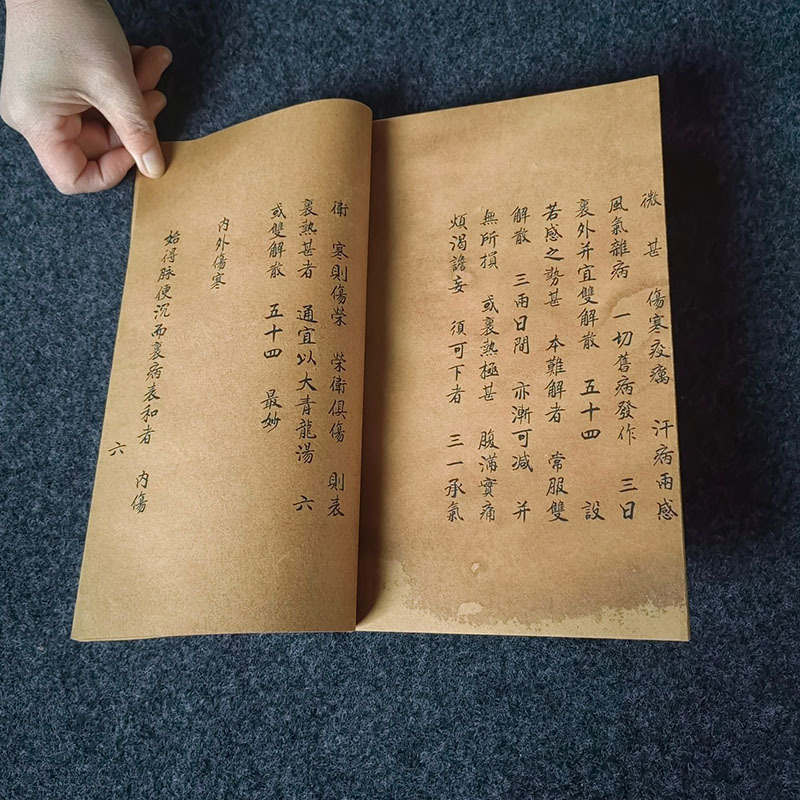 微甚 傷寒疫癘 汗病兩感
風氣雜病 一切舊病發作 三日
裏外并宜雙解散 五十四 設
若感之勢甚 本難解者 常服雙
解散 三兩日間 亦漸可減 并
無所損 或裏熱極甚 腹滿實痛
煩渴譫妄 須可下者 三一承氣
衛 寒則傷榮 榮衛俱傷 則表
裏熱甚者 通宜以大青龍湯 六
或雙解散 五十四 最妙
內外傷寒
始得脉便沉而裏病表和者 內傷
六